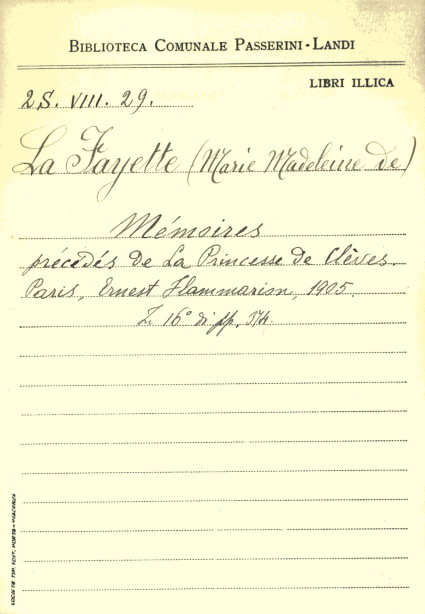 BIBLIOTECA COMUNALE PASSERINI-LANDI
LIBRI ILLICA
2S. VIII. 29.
La Fayette (Marie Madeleine de)
Mémoires
précédés de La Princesse de Clèves.
Paris, Ernest Flammarion, 1905.
16° di pp. 374.